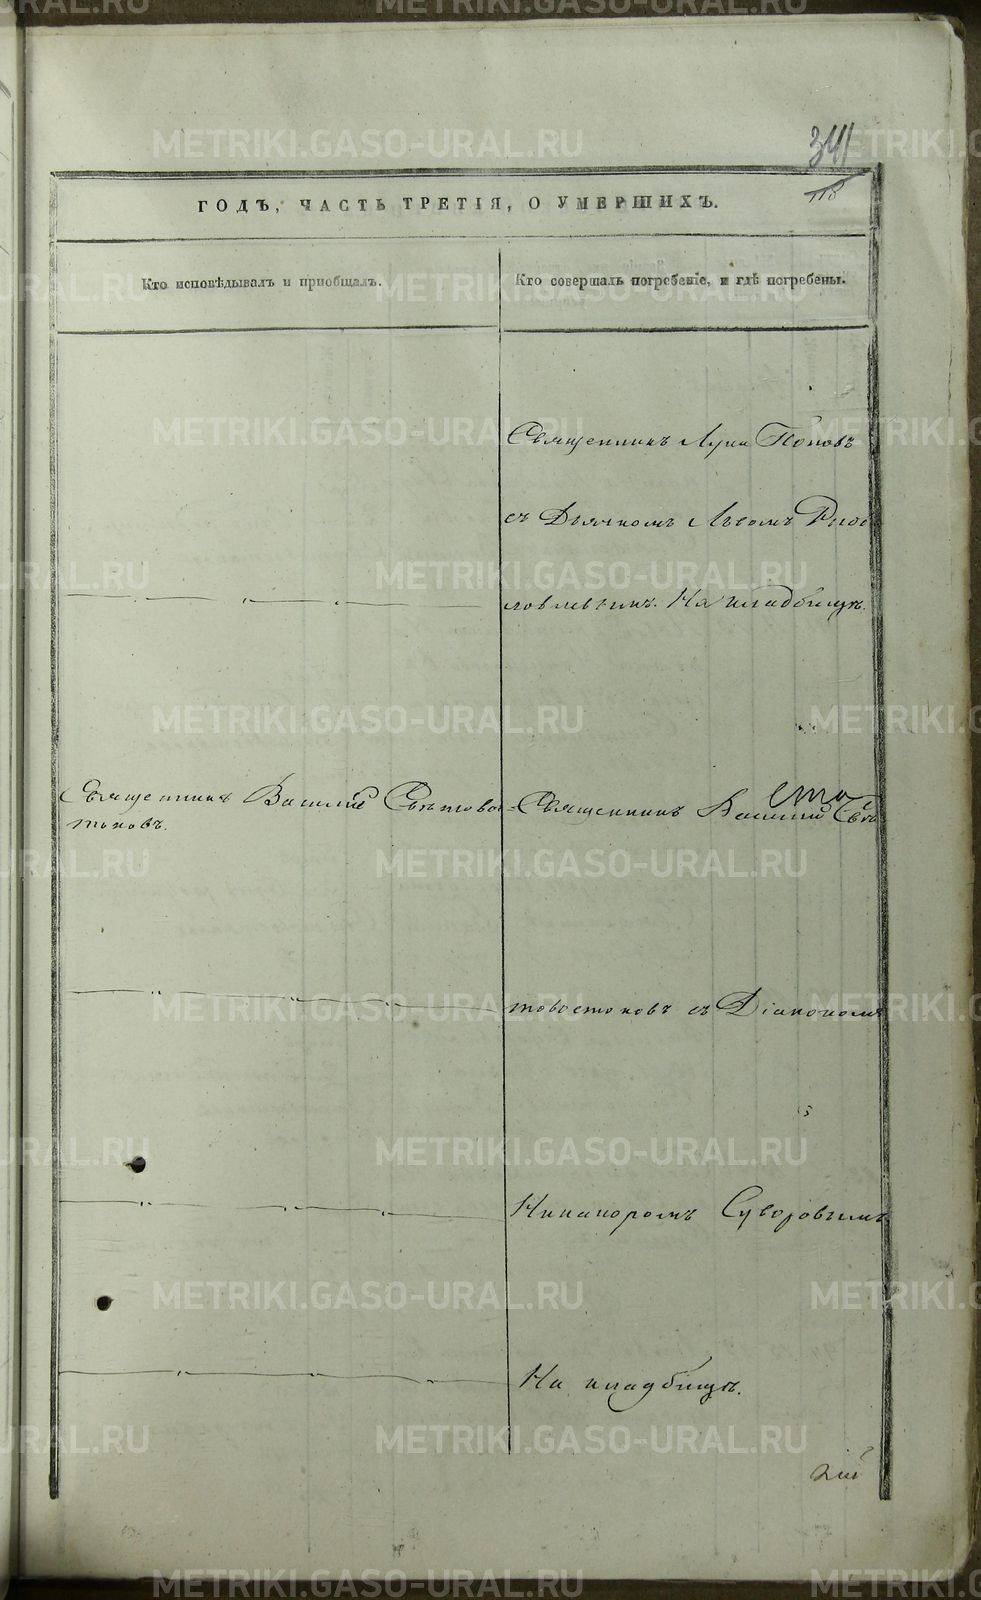 341
118
ГОДЪ, ЧАСТЬ ТРЕТІЯ, О УМЕРШИХЪ.
Кто исповѣдывалъ и пріобщалъ.
Кто совершалъ погребеніе, и гдѣ погребены.
Священникъ Лука Поповъ
съ Дьячкомъ Львомъ
На кладбищѣ.
Священникъ Василій Свѣтово-
стоковъ.
Священникъ Василій Свѣ-
товостоковъ съ Діакономъ
Никаноромъ Суворовымъ
На кладбищѣ.
METRIKI.GASO-URAL.RU